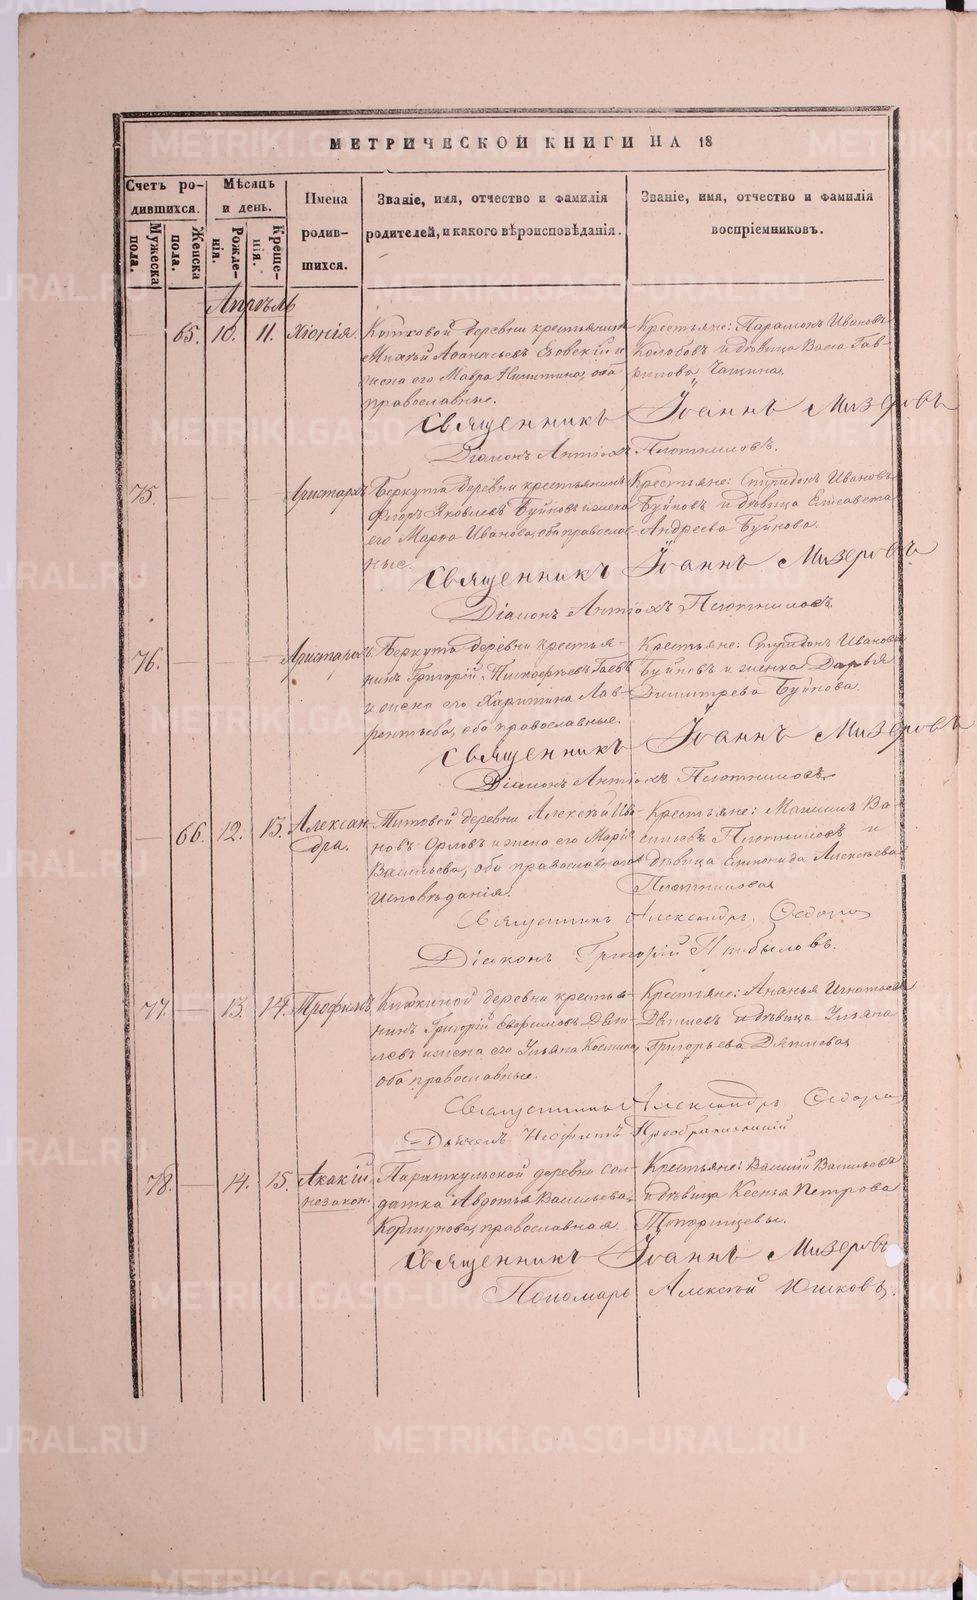 МЕТРИЧЕСКОЙ КНИГИ НА 18
Счетъ родившихся.
Мѣсяцъ и день.
Имена родившихся.
Званіе, имя, отчество и фамилія родителей, и какого вѣроисповѣданія.
Званіе, имя, отчество и фамилія воспріемниковъ.
Мужеска пола.
Женска пола.
Рожденія.
Крещенія.
Апрѣль
65. 10. 11. Хіонія.
деревни крестьянинъ
Аѳанасьевъ и
жена его Мавра Никитина, оба
православные.
Крестьяне: Парамонъ Ивановъ
Колобовъ и дѣвица Васса Гав-
рилова Чащина.
Священникъ Іоаннъ Мизеровъ
Діаконъ Антіохъ Плотниковъ.
75. Аристархъ
Беркута деревни крестьянинъ
Яковлевъ Буйновъ и жена
его Марѳа Иванова, оба православ-
ные.
Крестьяне: Спиридонъ Ивановъ
Буйновъ и дѣвица Елисавета
Андреева Буйнова.
Священникъ Іоаннъ Мизеровъ
Діаконъ Антіохъ Плотниковъ.
76. Аристархъ.
Беркута деревни крестья-
нинъ Григорій
и жена его Харитина Лав-
рентьева, оба православные.
Крестьяне: Спиридонъ Ивановъ
Буйновъ и женка Дарья
Димитрева Буйнова.
Священникъ Іоаннъ Мизеровъ
Діаконъ Антіохъ Плотниковъ
66. 12. 13. Алексан-
дра.
Титовой деревни Алексѣй Ива-
новъ Орловъ и жена его Марія
Васильева, оба православнаго
исповѣданія.
Крестьяне: Максимъ Ва-
сильевъ Плотниковъ и
дѣвица Алексѣева
Плотникова
Священникъ Александръ
Діаконъ Григорій Прибыловъ.
77. 13. 14. Трофимъ.
деревни крестья-
нинъ Григорій
и жена его Ульяна Косьмина,
оба православные.
Крестьяне: Ананья Игнатьевъ
и дѣвица Ульяна
Григорьева
Священникъ Александръ
Преображенскій
78. 14. 15. Акакій
незакон.
Параткульской деревни сол-
датка Авдотья Васильева
Коршунова, православная.
Крестьяне: Василій Васильевъ
и дѣвица Ксенья Петрова
Топорищевы.
Священникъ Іоаннъ Мизеровъ
Пономарь Алексѣй Юшковъ.
METRIKI.GASO-URAL.RU